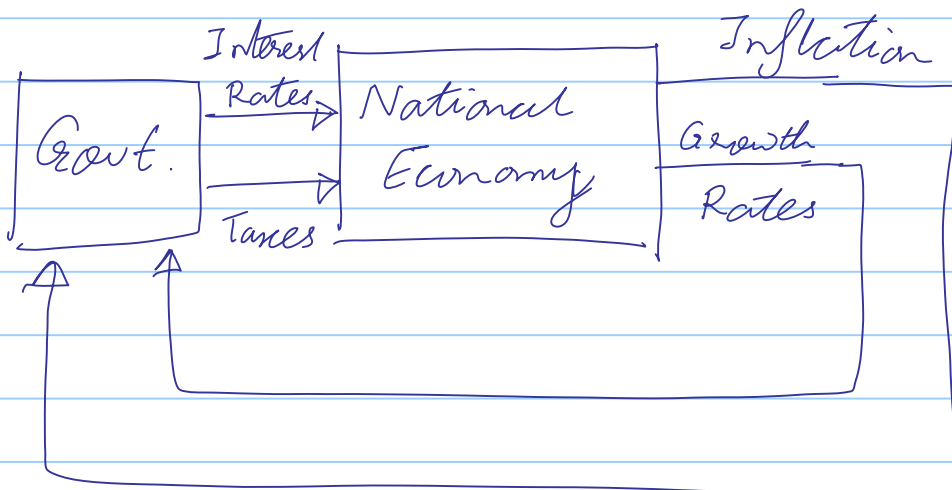 Interest
Rates
Taxes
Govt.
National
Economy
Inflation
Growth
Rates